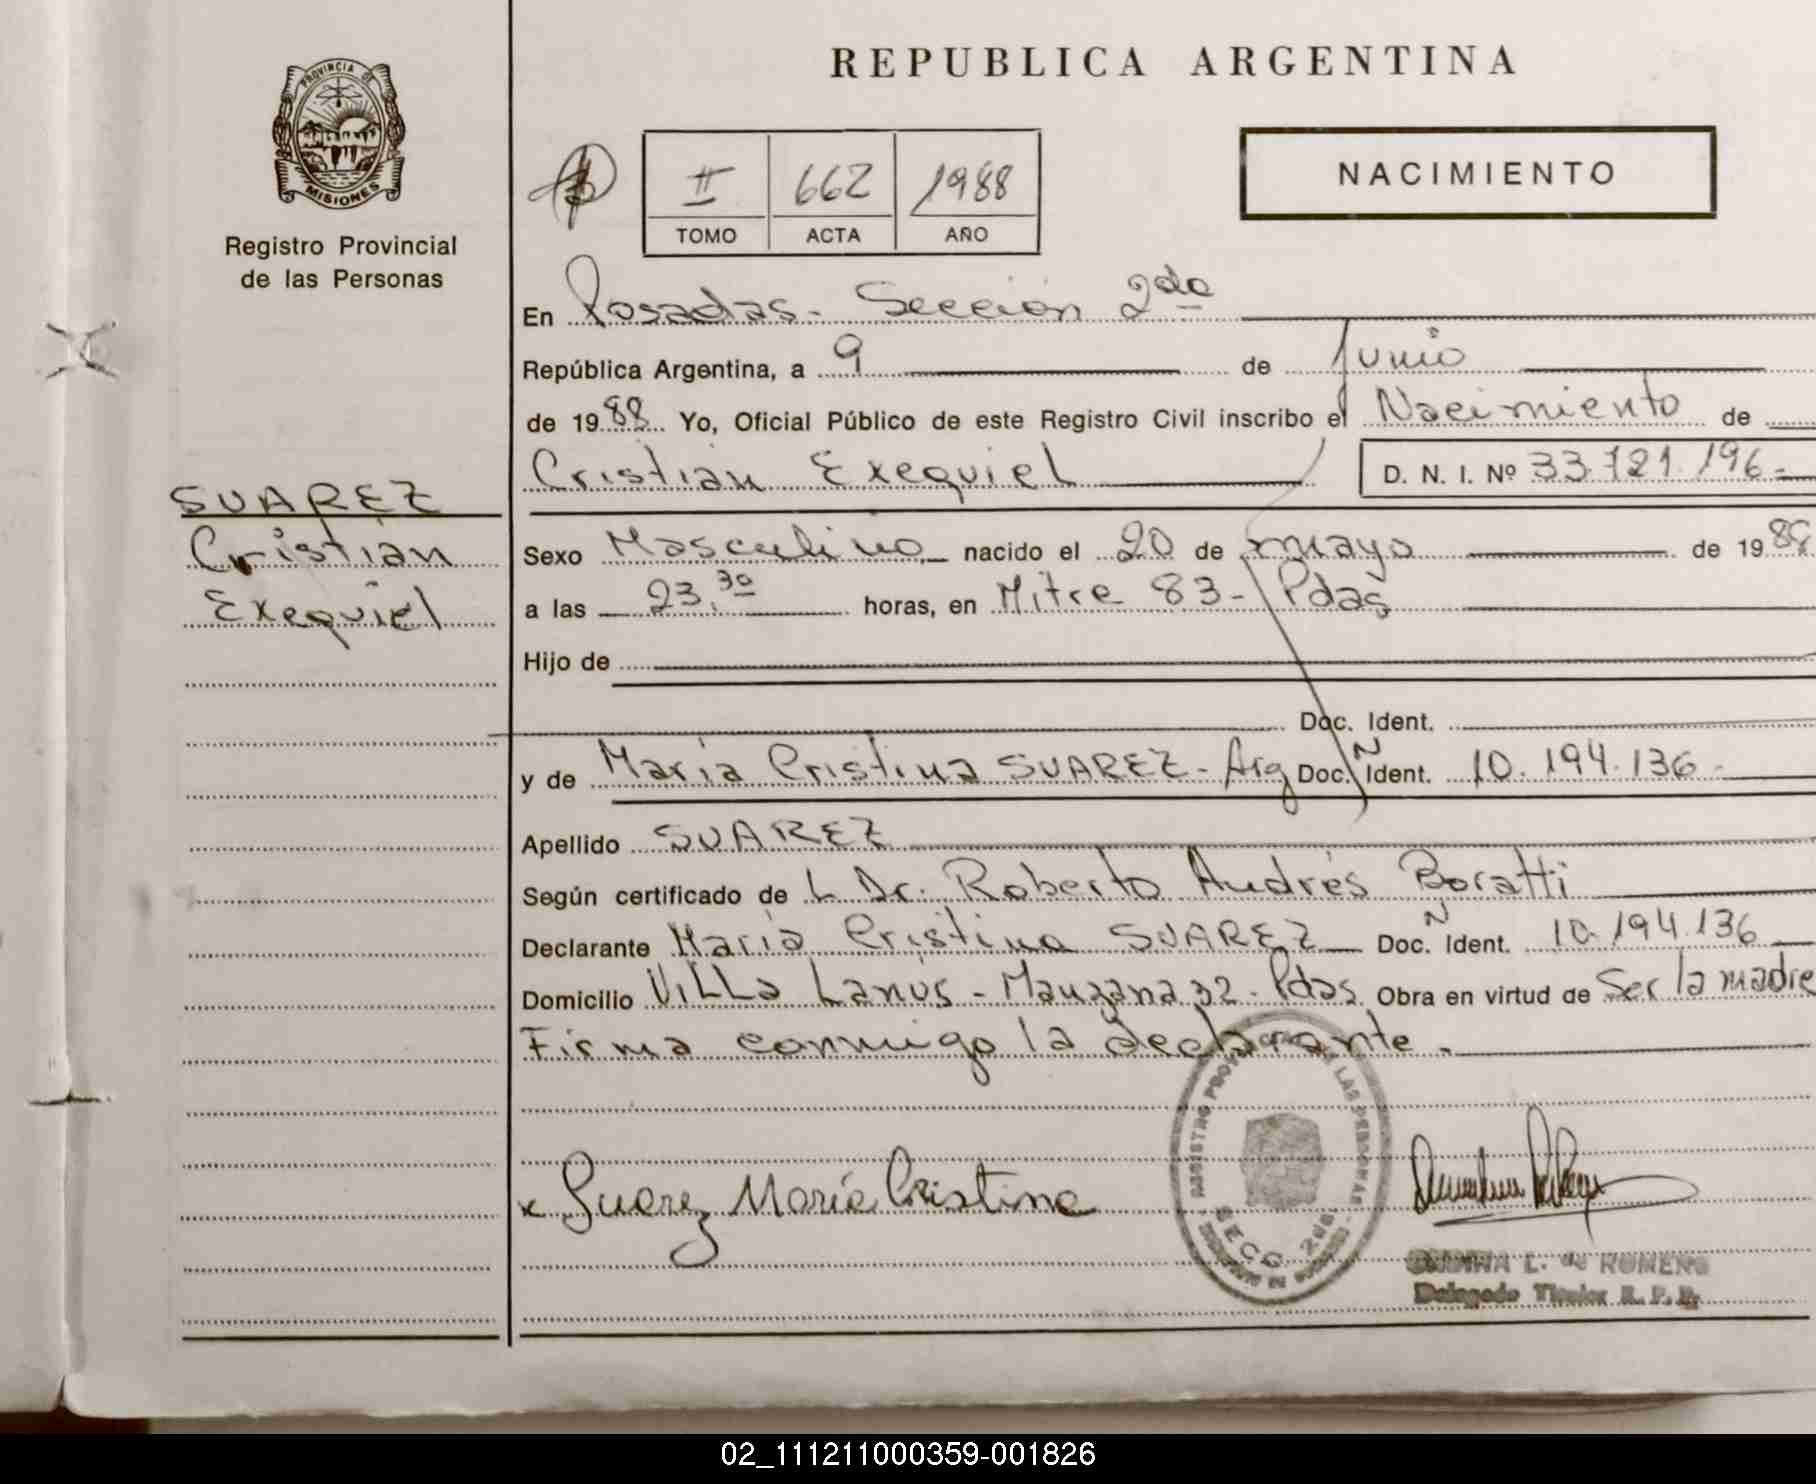 REPUBLICA ARGENTINA
PROVINCIA DE
MISIONES
Registro Provincial
de las Personas
II 662 1988
TOMO ACTA AÑO
NACIMIENTO
En Posadas - Sección 2da
República Argentina, a 9 de Junio
de 1988 Yo, Oficial Público de este Registro Civil inscribo el Nacimiento de
Cristian Exequiel D. N. I. Nº 33.721.196
SUAREZ
Cristian
Exequiel
Sexo Masculino nacido el 20 de mayo de 1988
a las 23,30 horas, en Mitre 83 - Pdas
Hijo de
Doc. Ident.
y de María Cristina SUAREZ - Arg Doc. N Ident. 10.194.136
Apellido SUAREZ
Según certificado de L Dr. Roberto Andrés Boratti
Declarante María Cristina SUAREZ Doc. N Ident. 10.194.136
Domicilio Villa Lanús - Manzana 32 - Pdas Obra en virtud de Ser la madre
Firma conmigo la declarante.
x Suarez María Cristina
REGISTRO LAS PERSONAS
SECC. 2da.
L. de ROMERO
Delegado Titular R. P. P.
02_111211000359-001826